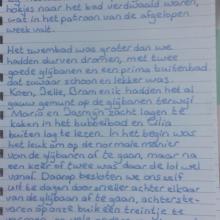 hokjes naar het bad verdwaald waren,
wat in het patroon van de afgelopen
week valt.
Het zwembad was groter dan we
hadden durven dromen, met twee
goede glijbanen en een prima buitenbad
dat zuiver schoon en lekker was.
Koen, Belle, Bram en ik hadden het al
gauw gemunt op de glijbanen terwijl
Maria en Jasmijn zacht lagen te
kaken in het buitenbad en Celia
buiten lag te lezen. In het begin was
het leuk om op de normale manier
van de glijbanen af te gaan, maar na
een keer of twee was daar de lol wel
vanaf. Daarop besloten we ons zelf
uit te dagen door sneller achter elkaar
van de glijbaan af te gaan, achterste-
voren op ons buik een treintje te